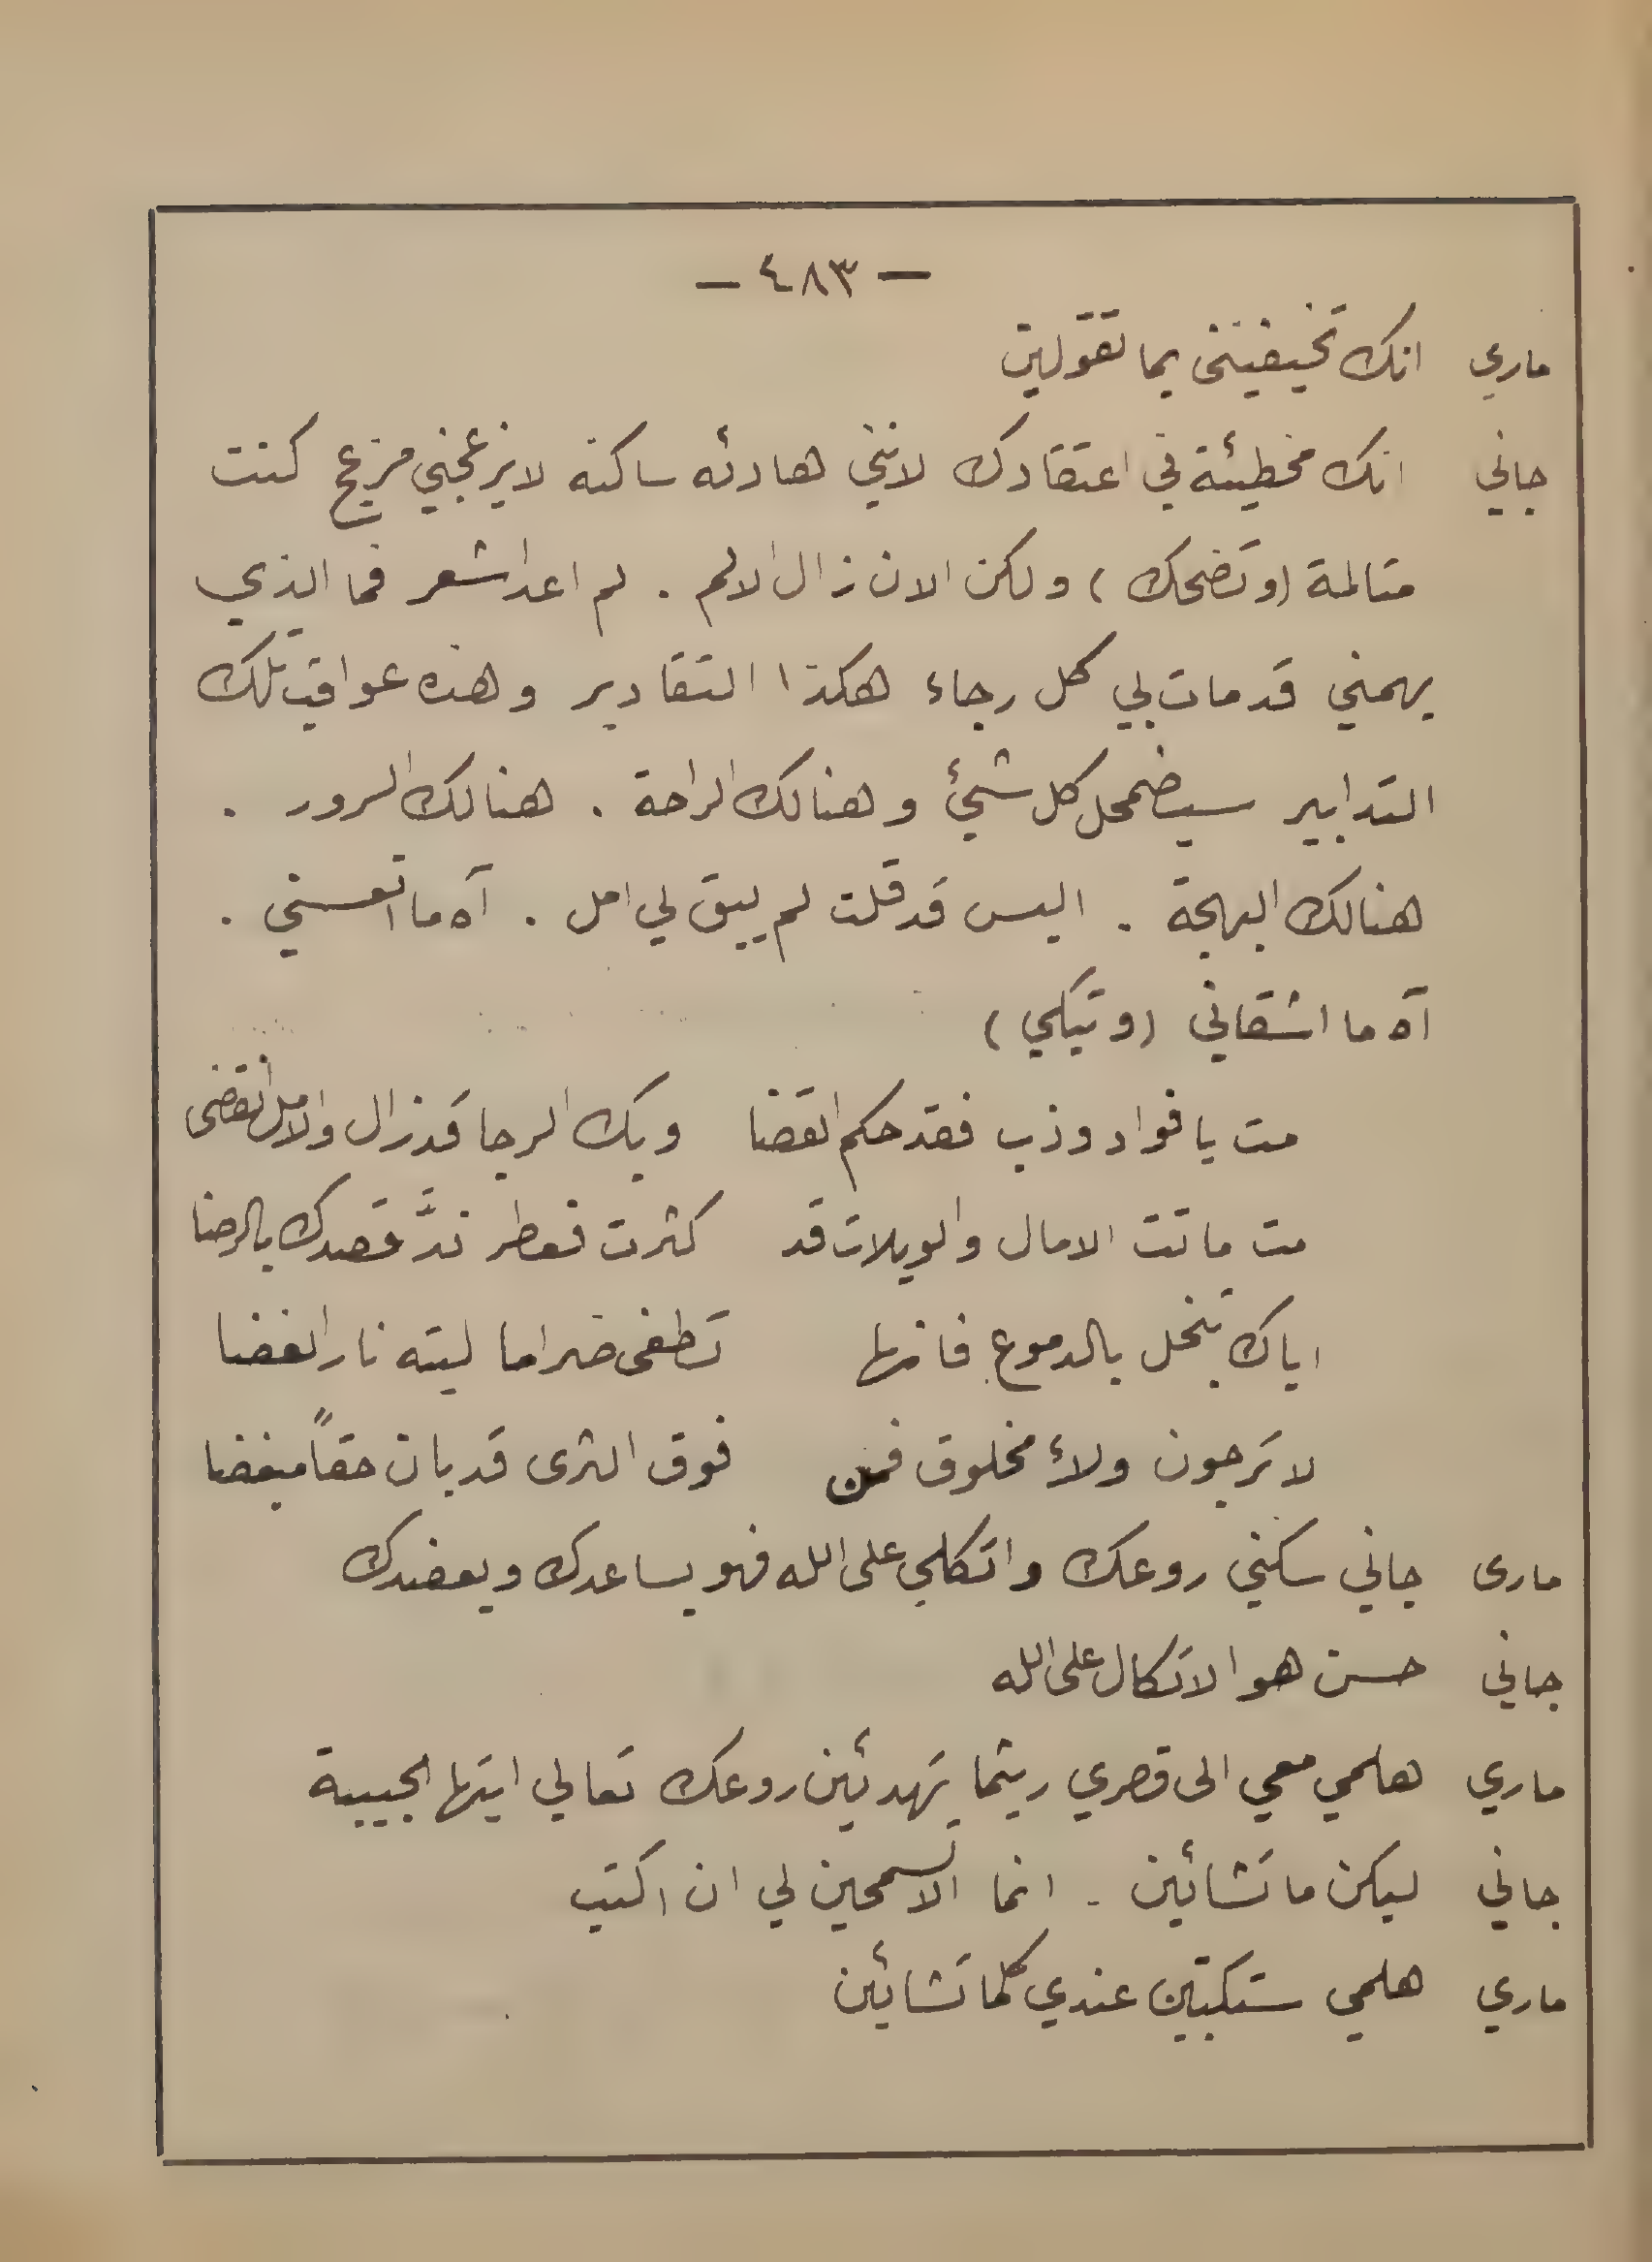 — ٤٨٣ —
ماري انك تخيفينني بما تقولين
جاني انك مخطيئة في اعتقادك لانني هادئه ساكنه لا يزعجني مزعج كنت
متالمة (وتضحك) ولكن الان زال الالم . لم اعد اشعر فما الذي
يهمني قد مات بي كل رجاء هكذا التقادير وهذه عواقب تلك
التدابير سيضمحل كل شيئ وهنالك الراحة . هنالك السرور .
هنالك البهجة . اليس قد قلت لم يبق لي امل . آه ما اتعسني .
آه ما اشقاني (وتبكي)
مت يا فواد وذب فقد حكم القضا وبك الرجا قد زال والامل انقضى
مت ماتت الامال والويلات قد كثرت فعطر ندَّ قصدك بالرضا
اياك تبخل بالدموع فانها تطفى ضراما ليته نار الغضا
لا ترجون ولاء مخلوق فمن فوق الثرى قد بان حقاً مبغضا
مارى جاني سكني روعك واتكلي على الله فهو يساعدك ويعضدك
جاني حسن هو الاتكال على الله
ماري هلمي معي الى قصري ريثما تهدئين روعك تعالي ايتها الحبيبة
جاني ليكن ما تشائين . انما الا تسمحين لي ان اكتب
ماري هلمي ستكتبين عندي كلما تشائين